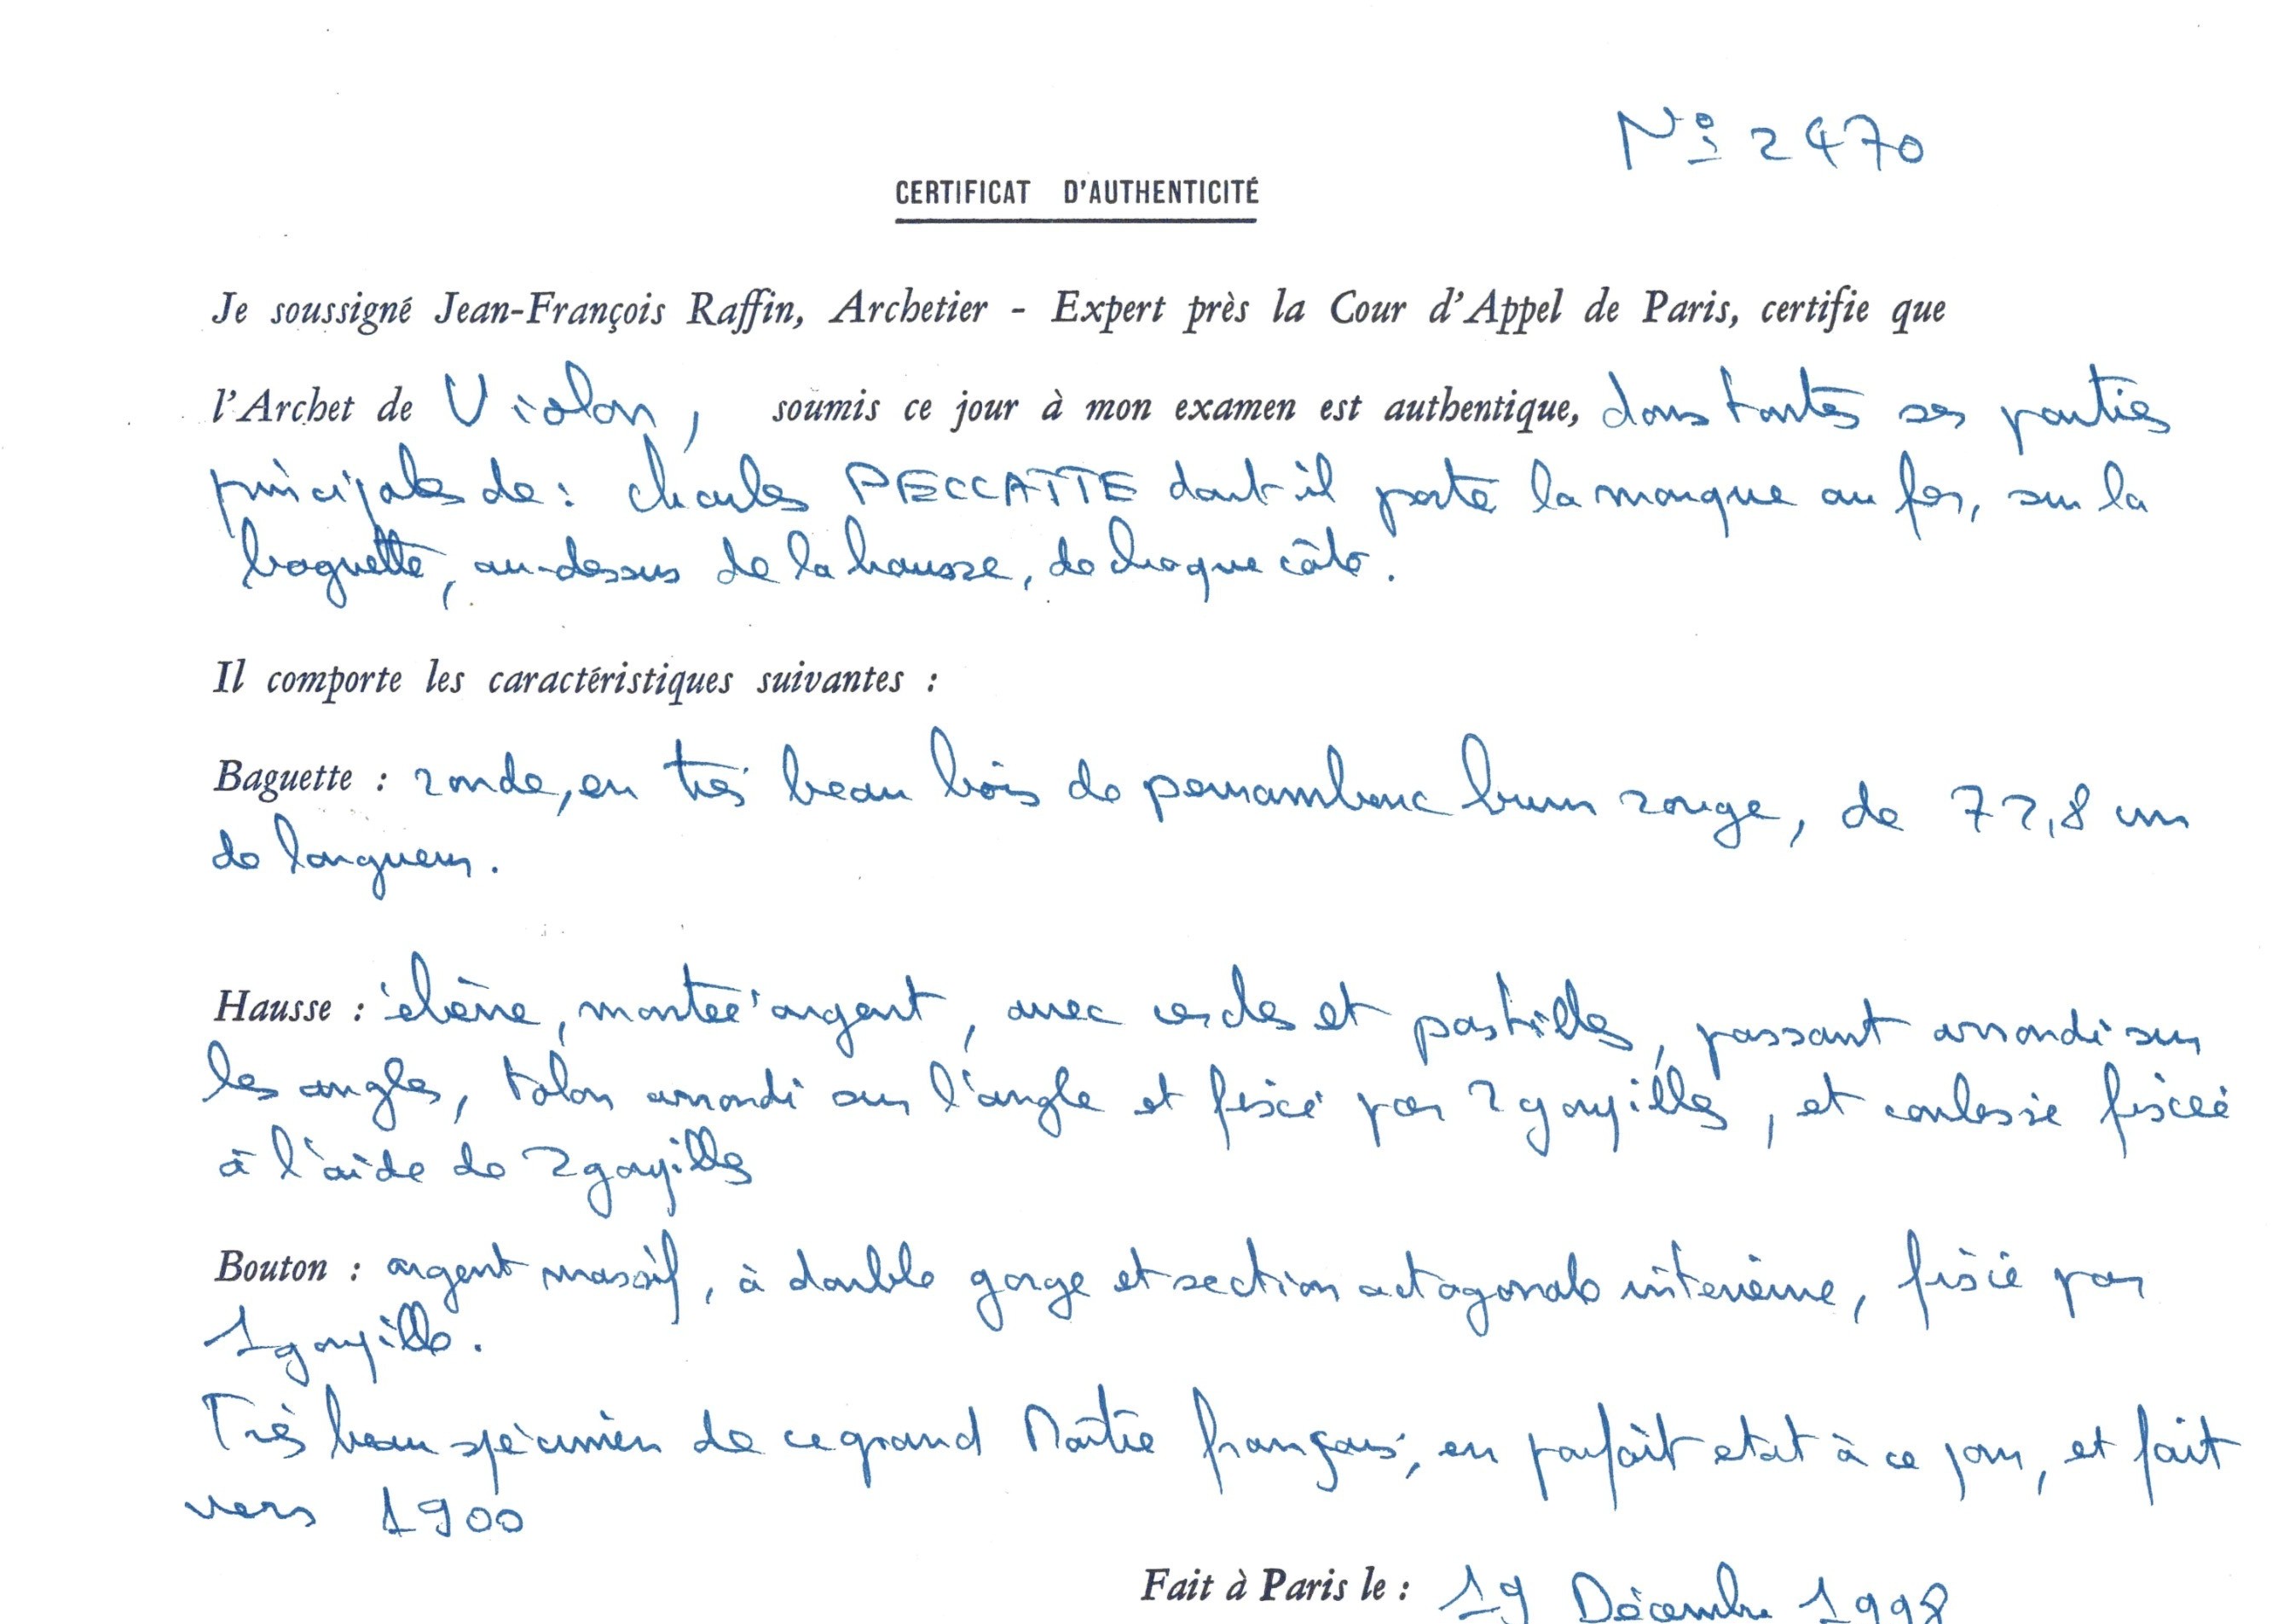 N° 2470
CERTIFICAT D'AUTHENTICITÉ
Je soussigné Jean-François Raffin, Archetier - Expert près la Cour d'Appel de Paris, certifie que
l'Archet de Violon, soumis ce jour à mon examen est authentique, dans toutes ses parties
principales de : Charles PECCATTE dont il porte la marque au fer, sur la
baguette, au-dessus de la hausse, de chaque côté.
Il comporte les caractéristiques suivantes :
Baguette : ronde, en très beau bois de pernambouc brun rouge, de 72,8 cm
de longueur.
Hausse : ébène, montée argent, avec cercles et pastilles, passant arrondi sur
les angles, talon arrondi sur l'angle et fixé par 2 goupilles, et coulisse fixée
à l'aide de 2 goupilles
Bouton : argent massif, à double gorge et section octogonale intérieure, fixé par
1 goupille.
Très beau spécimen de ce grand Maître français, en parfait état à ce jour, et fait
vers 1900
Fait à Paris le : 19 Décembre 1998